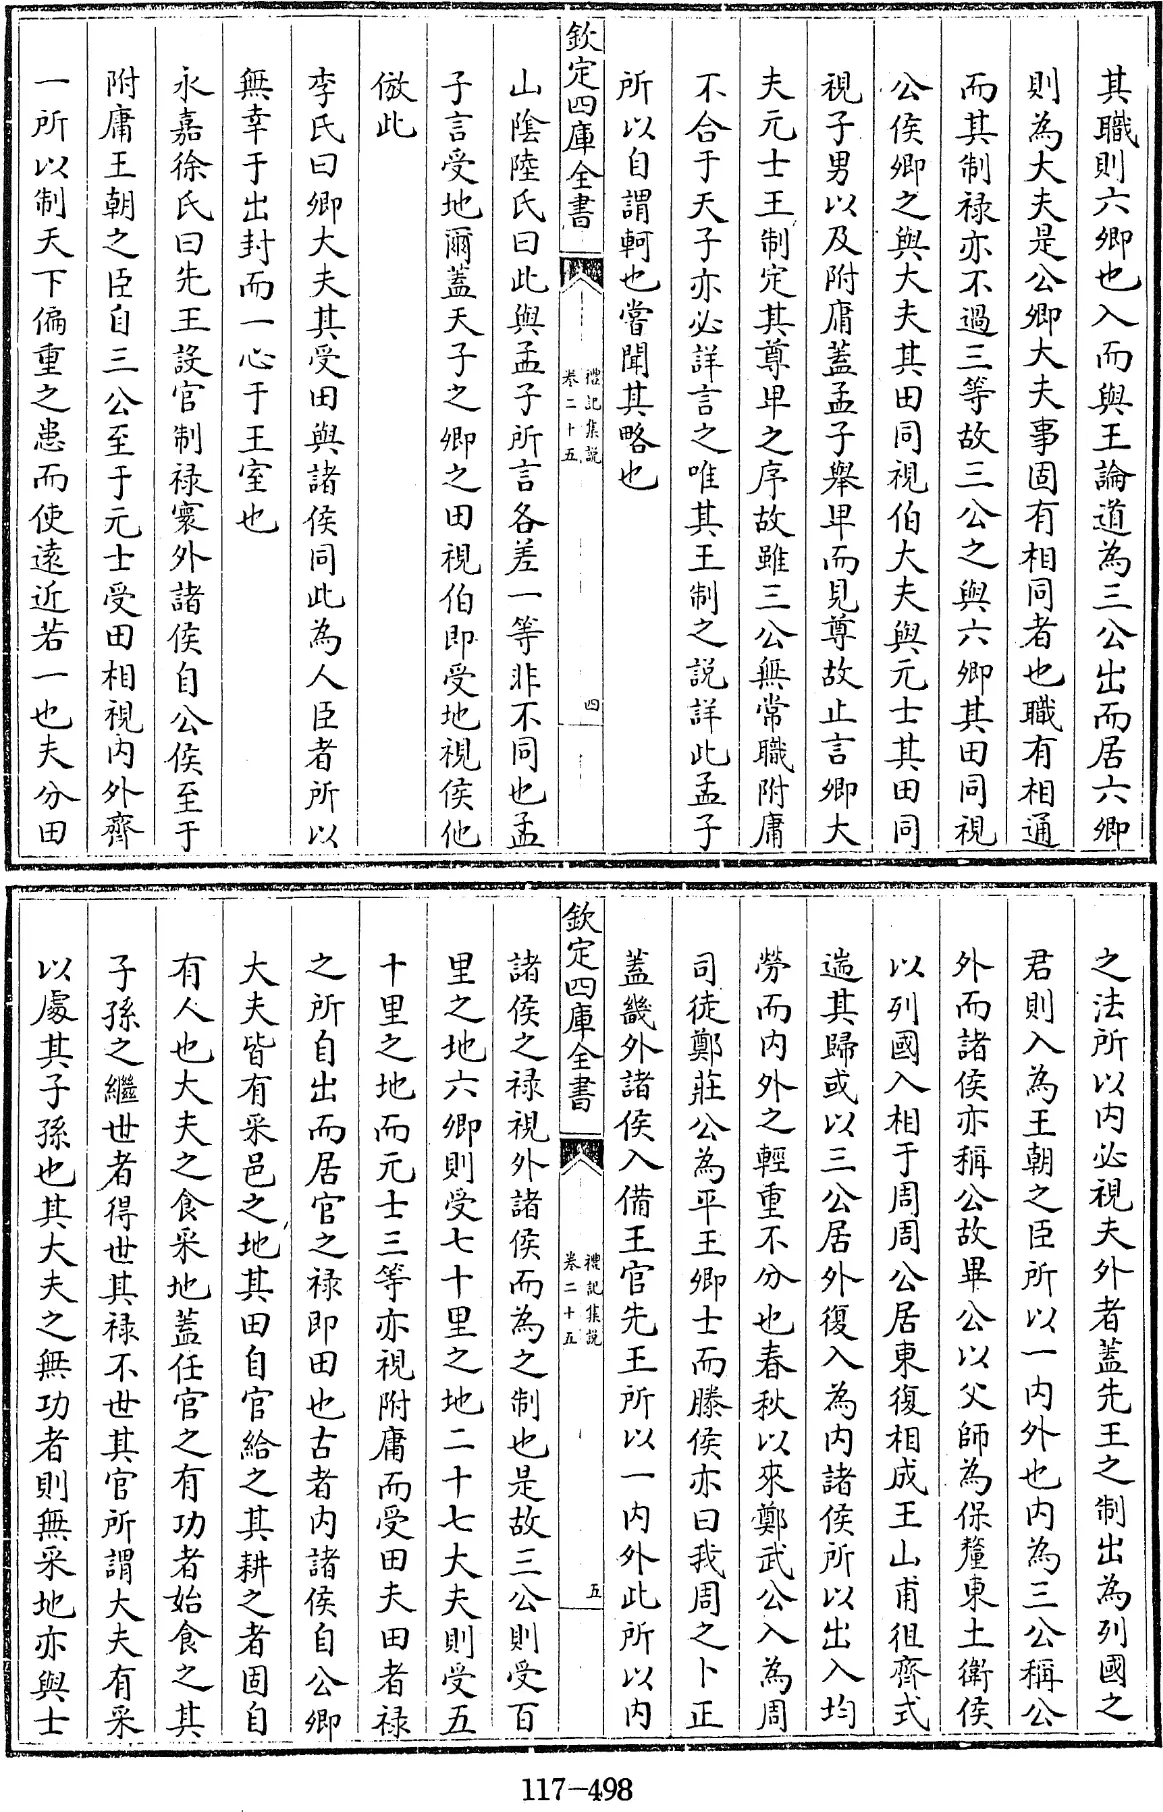 其職則六卿也入而與王論道為三公出而居六卿
則為大夫是公卿大夫事固有相同者也職有相通
而其制禄亦不過三等故三公之與六卿其田同視
公侯卿之與大夫其田同視伯大夫與元士其田同
視子男以及附庸蓋孟子舉卑而見尊故止言卿大
夫元士王制定其尊卑之序故雖三公無常職附庸
不合于天子亦必詳言之唯其王制之説詳此孟子
所以自謂軻也嘗聞其略也
欽定四庫全書
禮記集説
卷二十五
四
山隂陸氏曰此與孟子所言各差一等非不同也孟
子言受地爾蓋天子之卿之田視伯即受地視侯他
倣此
李氏曰卿大夫其受田與諸侯同此為人臣者所以
無幸于出封而一心于王室也
永嘉徐氏曰先王設官制禄寰外諸侯自公侯至于
附庸王朝之臣自三公至于元士受田相視内外齊
一所以制天下偏重之患而使逺近若一也夫分田
之法所以内必視夫外者蓋先王之制出為列國之
君則入為王朝之臣所以一内外也内為三公稱公
外而諸侯亦稱公故畢公以父師為保釐東土衛侯
以列國入相于周周公居東復相成王山甫徂齊式
遄其歸或以三公居外復入為内諸侯所以出入均
勞而内外之輕重不分也春秋以來鄭武公入為周
司徒鄭莊公為平王卿士而滕侯亦曰我周之卜正
蓋畿外諸侯入備王官先王所以一内外此所以内
欽定四庫全書
禮記集説
卷二十五
五
諸侯之禄視外諸侯而為之制也是故三公則受百
里之地六卿則受七十里之地二十七大夫則受五
十里之地而元士三等亦視附庸而受田夫田者禄
之所自出而居官之禄即田也古者内諸侯自公卿
大夫皆有采邑之地其田自官給之其耕之者固自
有人也大夫之食采地蓋任官之有功者始食之其
子孫之繼世者得世其禄不世其官所謂大夫有采
以處其子孫也其大夫之無功者則無采地亦與士
117-498